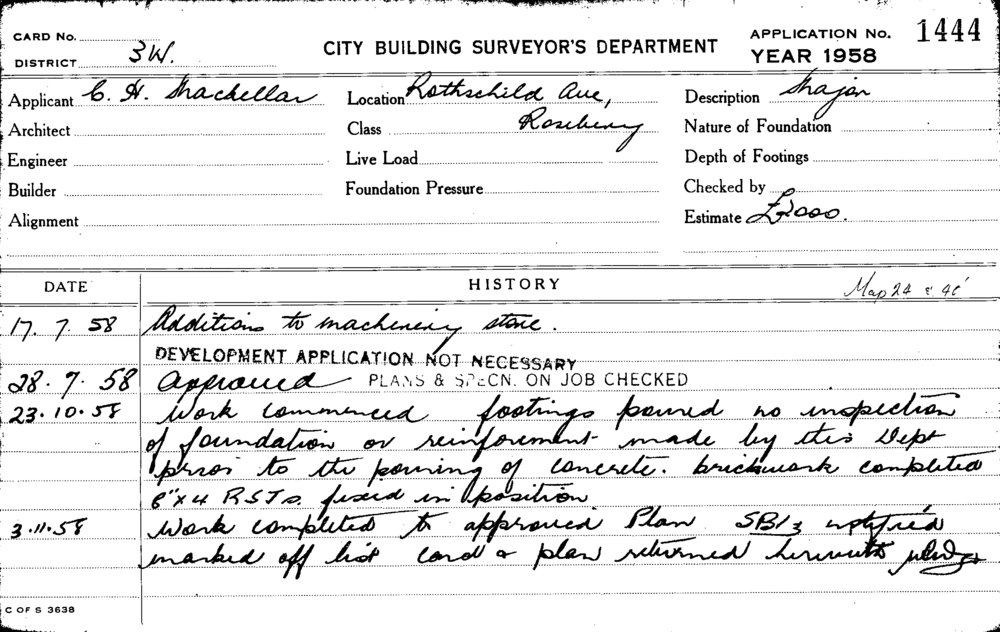 CARD No.
DISTRICT 3W.
CITY BUILDING SURVEYOR'S DEPARTMENT
APPLICATION No. 1444
YEAR 1958
Applicant C. H. Mackellar Location Rothschild Ave, Description Major
Architect Class Rosebery Nature of Foundation
Engineer Live Load Depth of Footings
Builder Foundation Pressure Checked by
Alignment Estimate £2000.
DATE HISTORY Map 24
17. 7. 58 Additions to machinery store.
DEVELOPMENT APPLICATION NOT NECESSARY
28. 7. 58 Approved PLANS & SPECN. ON JOB CHECKED
23.10.58 Work commenced footings poured no inspection
of foundation or reinforcement made by this Dept
prior to the pouring of concrete. brickwork completed
8"x4 RSJs. fixed in position
3.11.58 Work completed to approved Plan notified
marked off list card & plan returned herewith
C OF S 3638